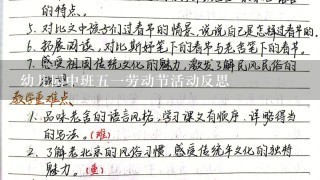 的特点。
5. 对比文中孩子们过春节的情景,说说自己是怎样过春节的。
6. 拓展阅读,对比斯好笔下的春节与老舍笔下的春节。
7. 感受祖国传统文化的魅力,激发了解民风民俗的
幼儿园中班五一劳动节活动反思
教学重难点
1. 品味老舍的语言风格,学习课文有顺序、详略得当
的写法。(难)
2. 了解老北京的风俗习惯,感受传统年文化的独特
魅力。(重)